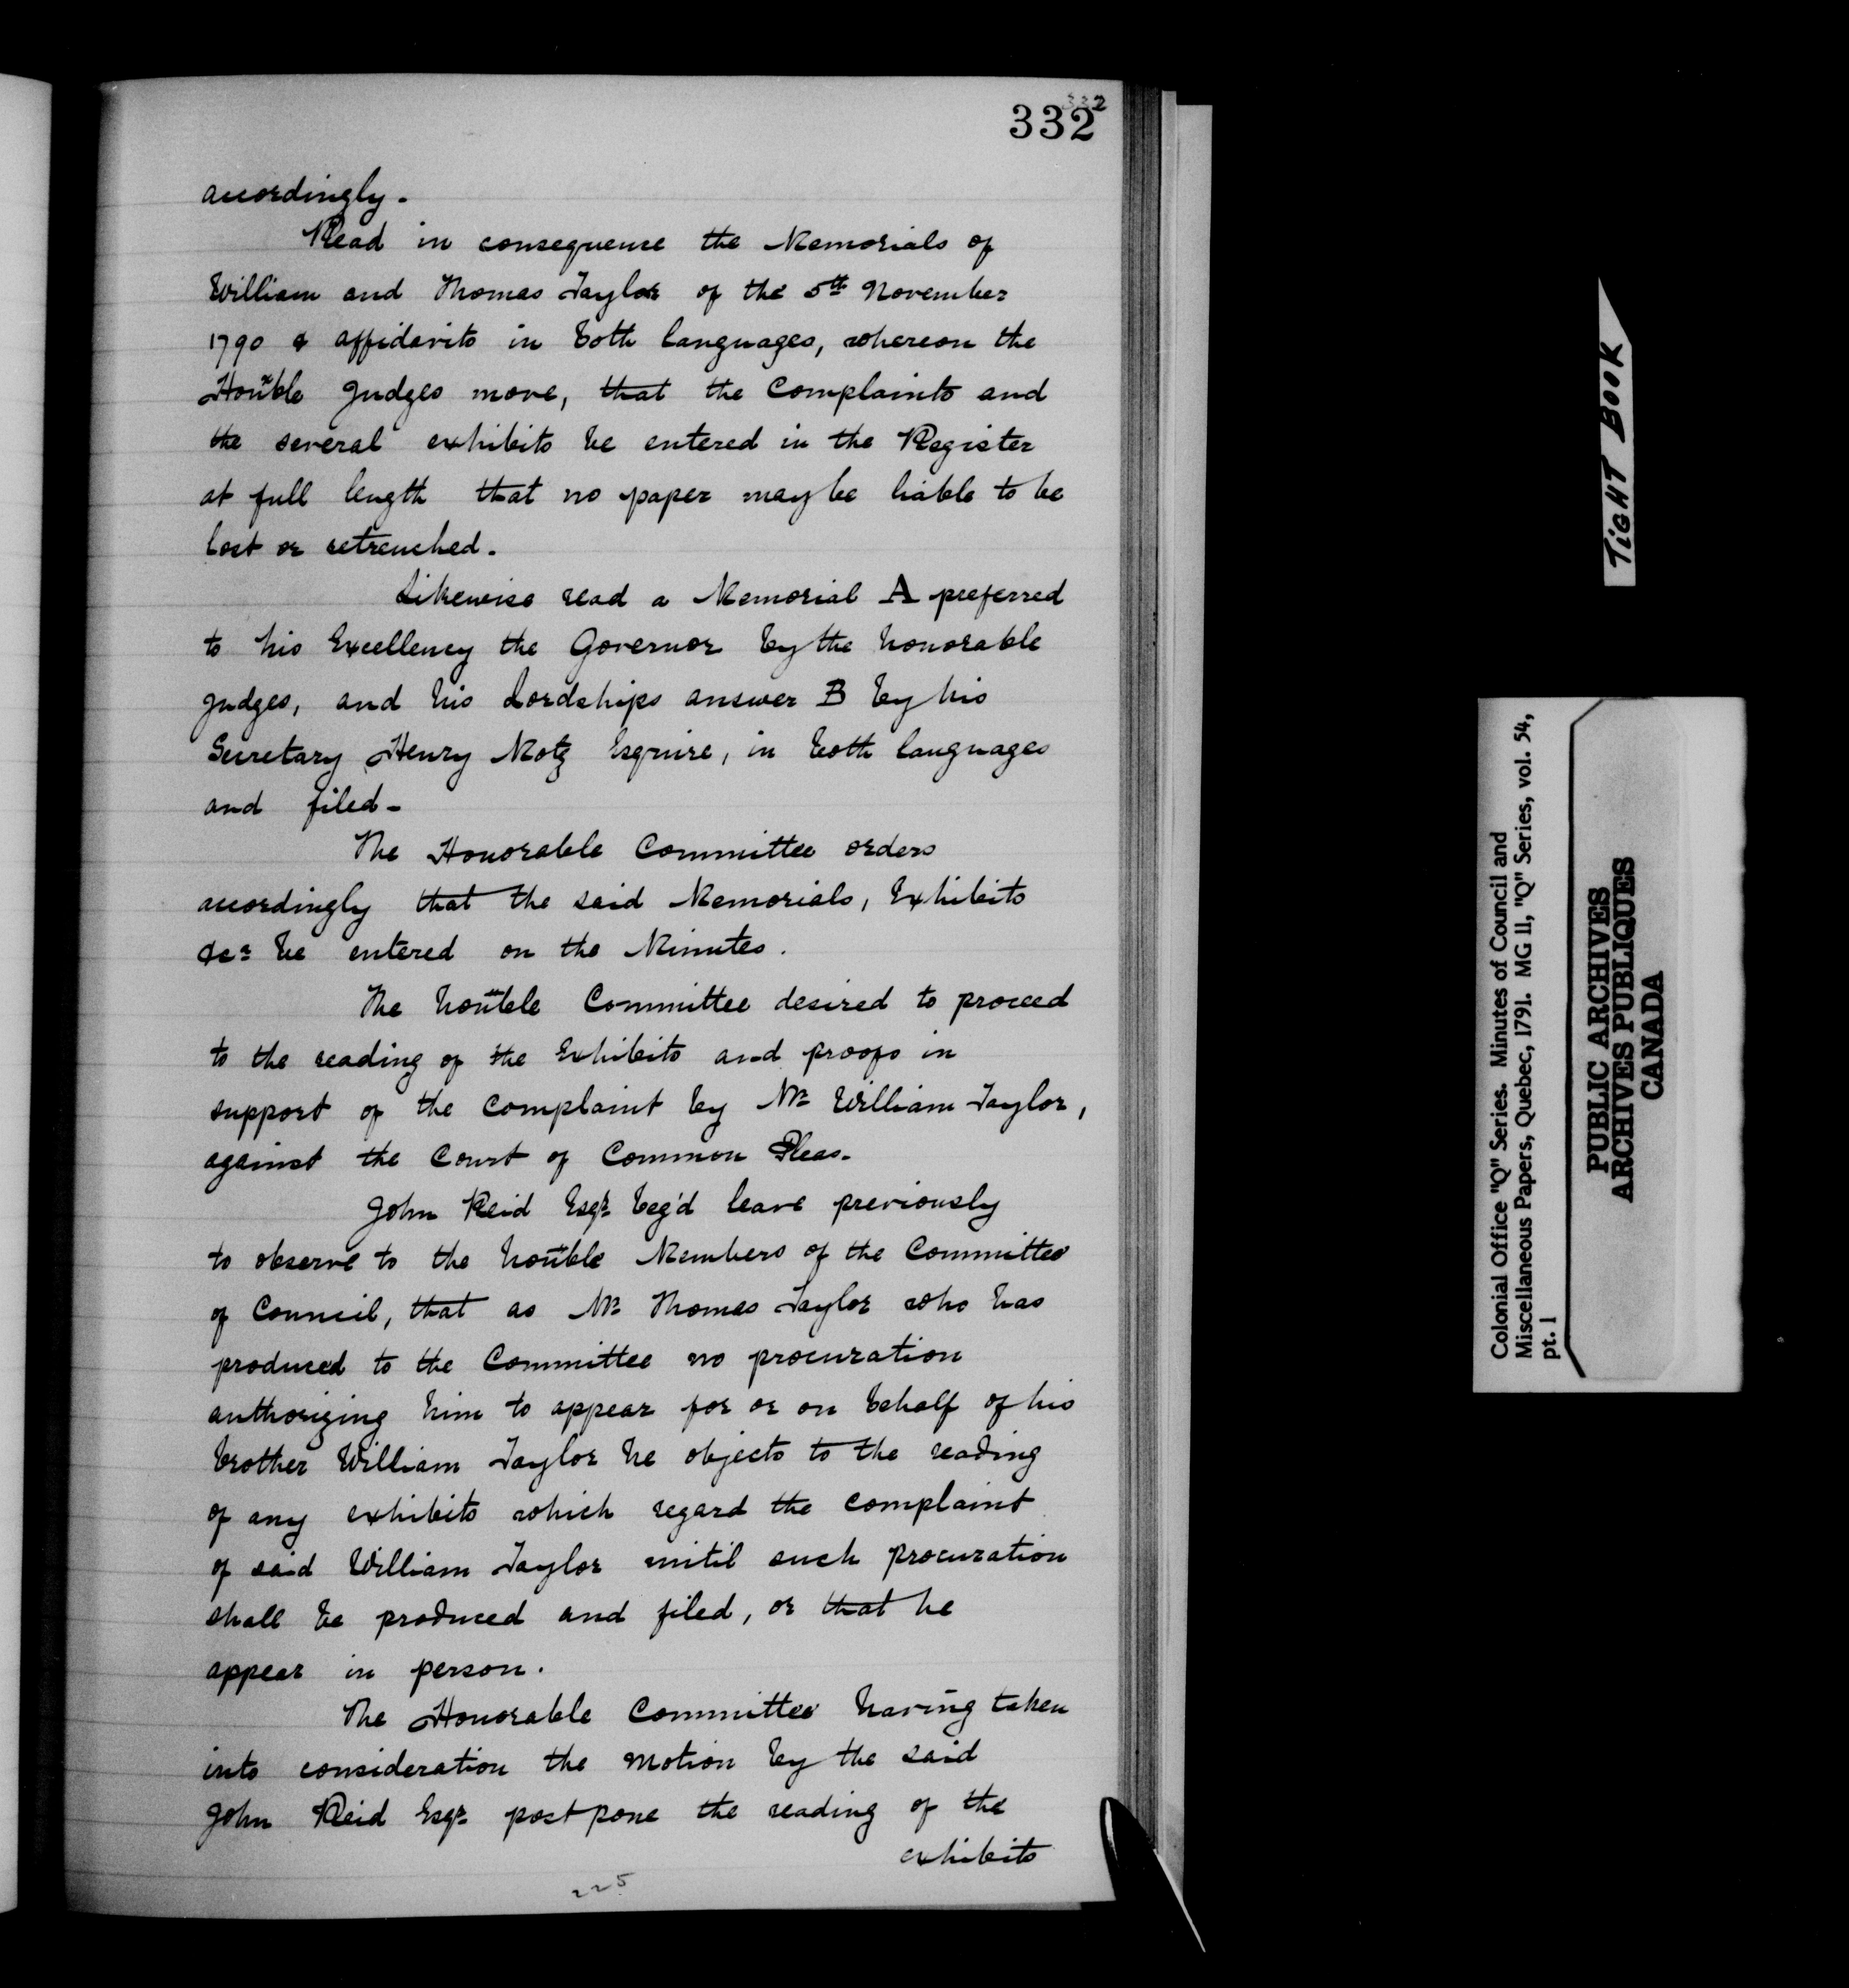 332
332
accordingly.
Read in consequence the Memorials of
William and Thomas Taylor of the 5th November
1790 & affidavits in both languages, whereon the
Honble Judges move, that the Complaints and
the several exhibits be entered in the Register
at full length that no paper may be liable to be
lost or retrenched.
Likewise read a Memorial A preferred
to his Excellency the Governor by the honorable
Judges, and his Lordships answer B by his
Secretary Henry Motz Esquire, in both languages
and filed-
The Honorable Committee orders
accordingly that the said Memorials, Exhibits
&ca be entered on the Minutes.
The honble Committee desired to proceed
to the reading of the Exhibits and proofs in
support of the Complaint by Mr William Taylor,
against the Court of Common Pleas-
John Reid Esqr beg'd leave previously
to observe to the honble Members of the Committee
of Council, that as Mr Thomas Taylor who has
produced to the Committee no procuration
authorizing him to appear for or on behalf of his
brother William Taylor he objects to the reading
of any exhibits which regard the complaint
of said William Taylor until such procuration
shall be produced and filed, or that he
appear in person.
The Honorable Committee having taken
into consideration the motion by the said
John Reid Esqr postpone the reading of the
exhibits
225
TIGHT BOOK
Colonial Office "Q" Series. Minutes of Council and
Miscellaneous Papers, Quebec, 1791. MG 11, "Q" Series, vol. 54,
pt. 1
PUBLIC ARCHIVES
ARCHIVES PUBLIQUES
CANADA